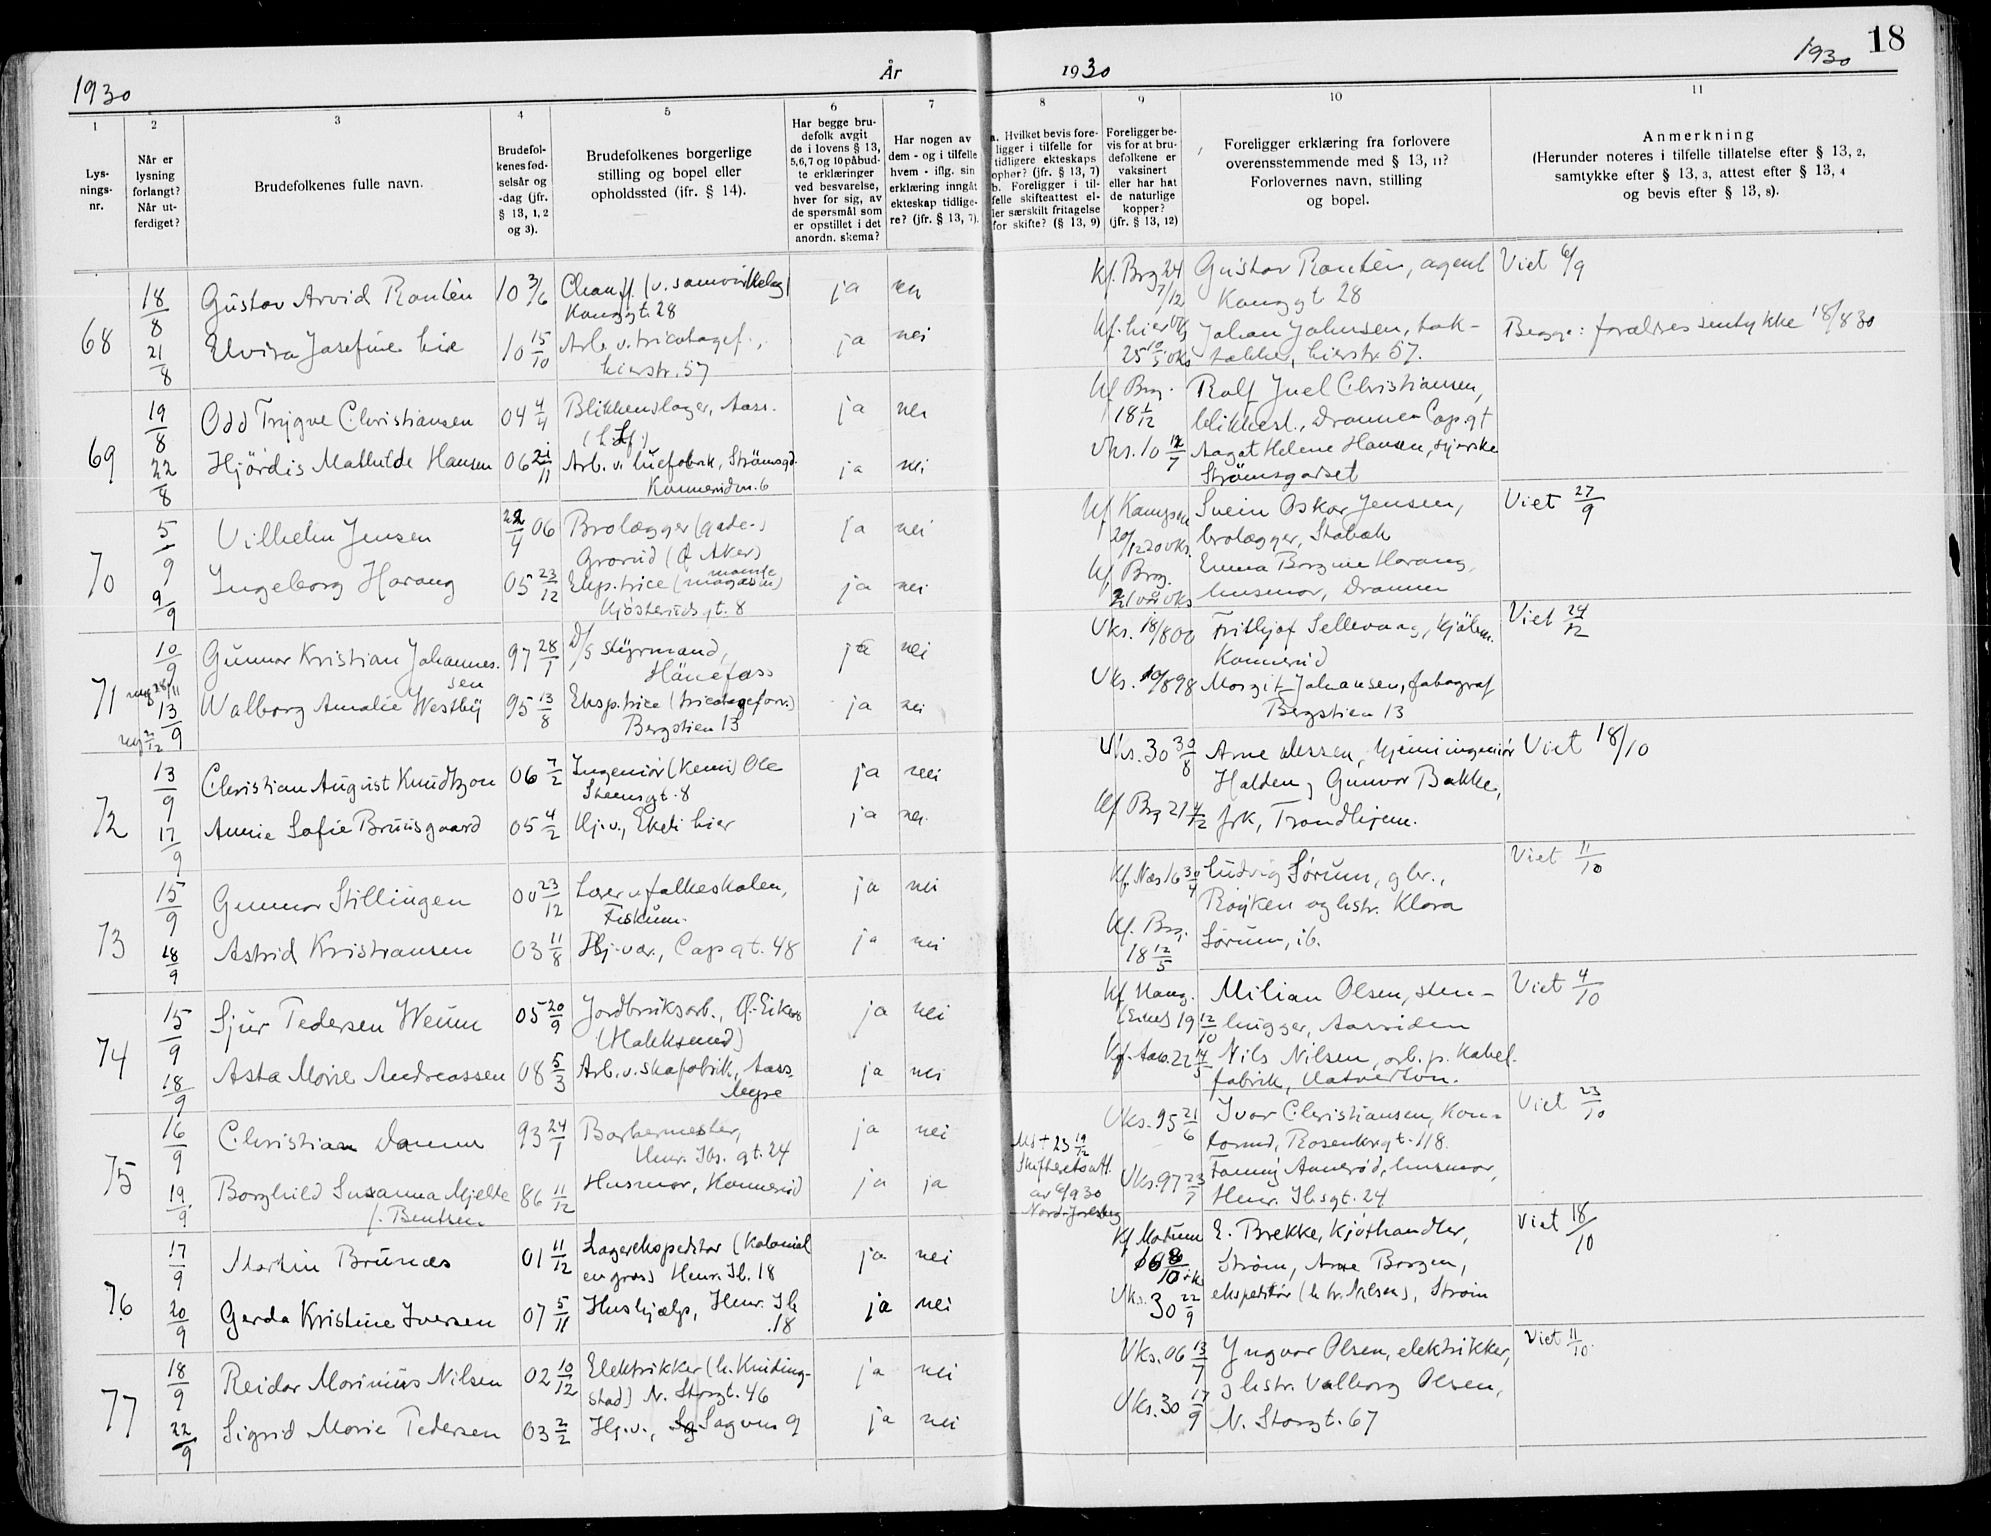 1930 År 1930 1930 18
1 2 3 4 5 6 7 8 9 10 11
Lysningsnr.
Når er lysning forlangt? Når utferdiget?
Brudefolkenes fulle navn.
Brudefolkenes fødselsår og -dag (jfr. § 13, 1, 2 og 3).
Brudefolkenes borgerlige stilling og bopel eller opholdssted (ifr. § 14).
Har begge brudefolk avgitt de i lovens § 13, 5,6,7 og 10 påbudte erklæringer ved besvarelse, hver for sig, av de spørsmål som er opstillet i det anordn. skema?
Har nogen av dem - og i tilfelle hvem - iflg. sin erklæring inngått ekteskap tidligere? (jfr. § 13, 7).
a. Hvilket bevis foreligger i tilfelle for tidligere ekteskaps ophør? (jfr. § 13, 7) b. Foreligger i tilfelle skifteattest eller særskilt fritagelse for skifte? (§ 13, 9)
Foreligger bevis for at brudefolkene er vaksinert eller har hat de naturlige kopper? (jfr. § 13, 12)
Foreligger erklæring fra forlovere overensstemmende med § 13, 11? Forlovernes navn, stilling og bopel.
Anmerkning
(Herunder noteres i tilfelle tillatelse efter § 13, 2, samtykke efter § 13, 3, attest efter § 13, 4 og bevis efter § 13, 8).
68
18/8 Gustav Arvid Rantén 10 3/6 Chauff. (v. samvirkelag) Konggt. 28 ja nei Kf. Brg 24 7/12 Gustav Rantén, agent Konggt 28 Viet 6/9
21/8 Elvira Josefine Lie 10 15/10 Arb. v. tricotagef., Lierstr. 57 ja nei Kf. Lier 25 10/5 Johan Johnsen, taktekker, Lierstr. 57. Begge: forældres samtykke 18/8 30
69
19/8 Odd Trygve Christiansen 04 4/4 Blikkenslager, Aass. ja nei Kf Brg. 18 1/12 Rolf Juel Christiansen, blikkensl., Drammen Cap. gt
22/8 Hjördis Mathilde Hansen 06 21/11 Arb. v. luefabrik, Strömsgd. Konnerudvn. 6 ja nei Vks. 10 12/7 Aagot Helene Hansen, Strömsgodset
70
5/9 Vilhelm Jensen 22/4 06 Brolægger (gade-) Grorud (Ø. Aker) ja nei Kf Kampen 20/12 20 Svein Oskar Jensen, brolægger, Stabæk Viet 27/9
9/9 Ingeborg Harang 05 23/12 Eksp.trice (magasin) Kjösteruds gt. 8 ja nei Kf Brg. Emma Harang, husmor, Drammen
71
10/9 Gunnar Kristian Johannessen 97 28/1 D/S styrmand, Hönefoss ja nei Vks. 18/8 00 Frithjof Sellevaag, Konnerud Viet 24/12
13/9 Walborg Amalie Westby 95 13/8 Eksp.trice (tricotageforr.) Bergstien 13 ja nei Vks. 10/8 98 Margit Johansen, fotograf Bergstien 13
ny 28/11
ny 2/12
72
13/9 Christian August Knudtzon 06 7/2 Ingeniör (kemi) Ole Steensgt. 8 ja nei Vks. 30 30/8 Arne Jessen, kjemiingeniör Halden, Gunvor Bakke, Viet 18/10
17/9 Annie Sofie Bruusgaard 05 4/2 Hj.v., Ekeli her ja nei Kf Brg 21 4/12 frk, Trondhjem.
73
15/9 Gunnar Stillingen 00 23/12 Lærer v. folkeskolen, Fiskum. ja nei Kf. Næs 16 30/4 Ludvig Sørum, gbr., Röyken og hstr. Klara Viet 11/10
18/9 Astrid Kristiansen 03 11/8 Hj.vær., Capgt. 48 ja nei Kf. Brg. 18 12/5 Sørum, ib.
74
15/9 Sjur Pedersen Weum 05 20/9 Jordbruksarb., Ø.-Eiker (Hokksund) ja nei Kf Haug. (Eiker) 19 12/10 Milian Olsen, stenhugger, Aassiden Viet 4/10
18/9 Asta Marie Andreassen 08 5/3 Arb. v. skofabrik, Aass. ja nei Kf. Aass. 22 14/5 Nils Nilsen, arb. p. Kabelfabrik,
75
16/9 Christian Damm 93 24/1 Barbermester, Henr. Ibs. gt. 24 ja nei Vks. 95 21/6 Ivar Christiansen, Rosenkrgt. 118. Viet 23/10
19/9 Borghild Susanna Mjelde f. Bentsen 86 11/12 Husmor, Konnerud ja ja M + 23 19/12 Skifterettsatt. av 6/9 30 Nord-Jarlsberg Vks. 97 23/7 Fanny Annerød, husmor, Henr. Ibsgt. 24
76
17/9 Martin Brunæs 01 11/12 Lagerekspeditør (kolonial engros) Henr. Ib. 18 ja nei Kf Modum 16 8/10 E. Brekke, kjöthandler, Strøm, Arne Borgen, Viet 18/10
20/9 Gerda Kristine Iversen 07 5/11 Hushjælp, Henr. Ib. 18 ja nei Vks. 30 22/9 ekspeditör (h. hr. Nilsen), Strøm
77
18/9 Reidar Marinius Nilsen 02 10/12 Elektrikker (h. Knudingstad) N. Storgt. 46 ja nei Vks. 06 13/7 Yngvar Olsen, elektrikker, Viet 11/10.
22/9 Sigrid Marie Pedersen 03 2/2 Hj.v., Sagvn 9 ja nei Vks. 30 17/9 og hstr. Valborg Olsen, N. Storgt. 67